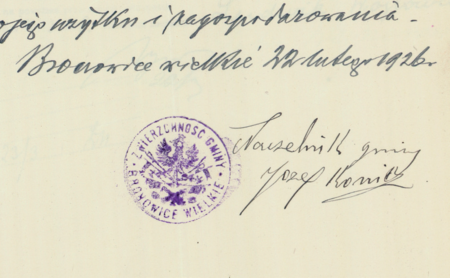 użytku i zagospodarowania.
Bronowice wielkie 22 lutego 1926 r.
ZWIERZCHNOŚĆ GMINY
BRONOWICE WIELKIE
Naczelnik gminy
Józef